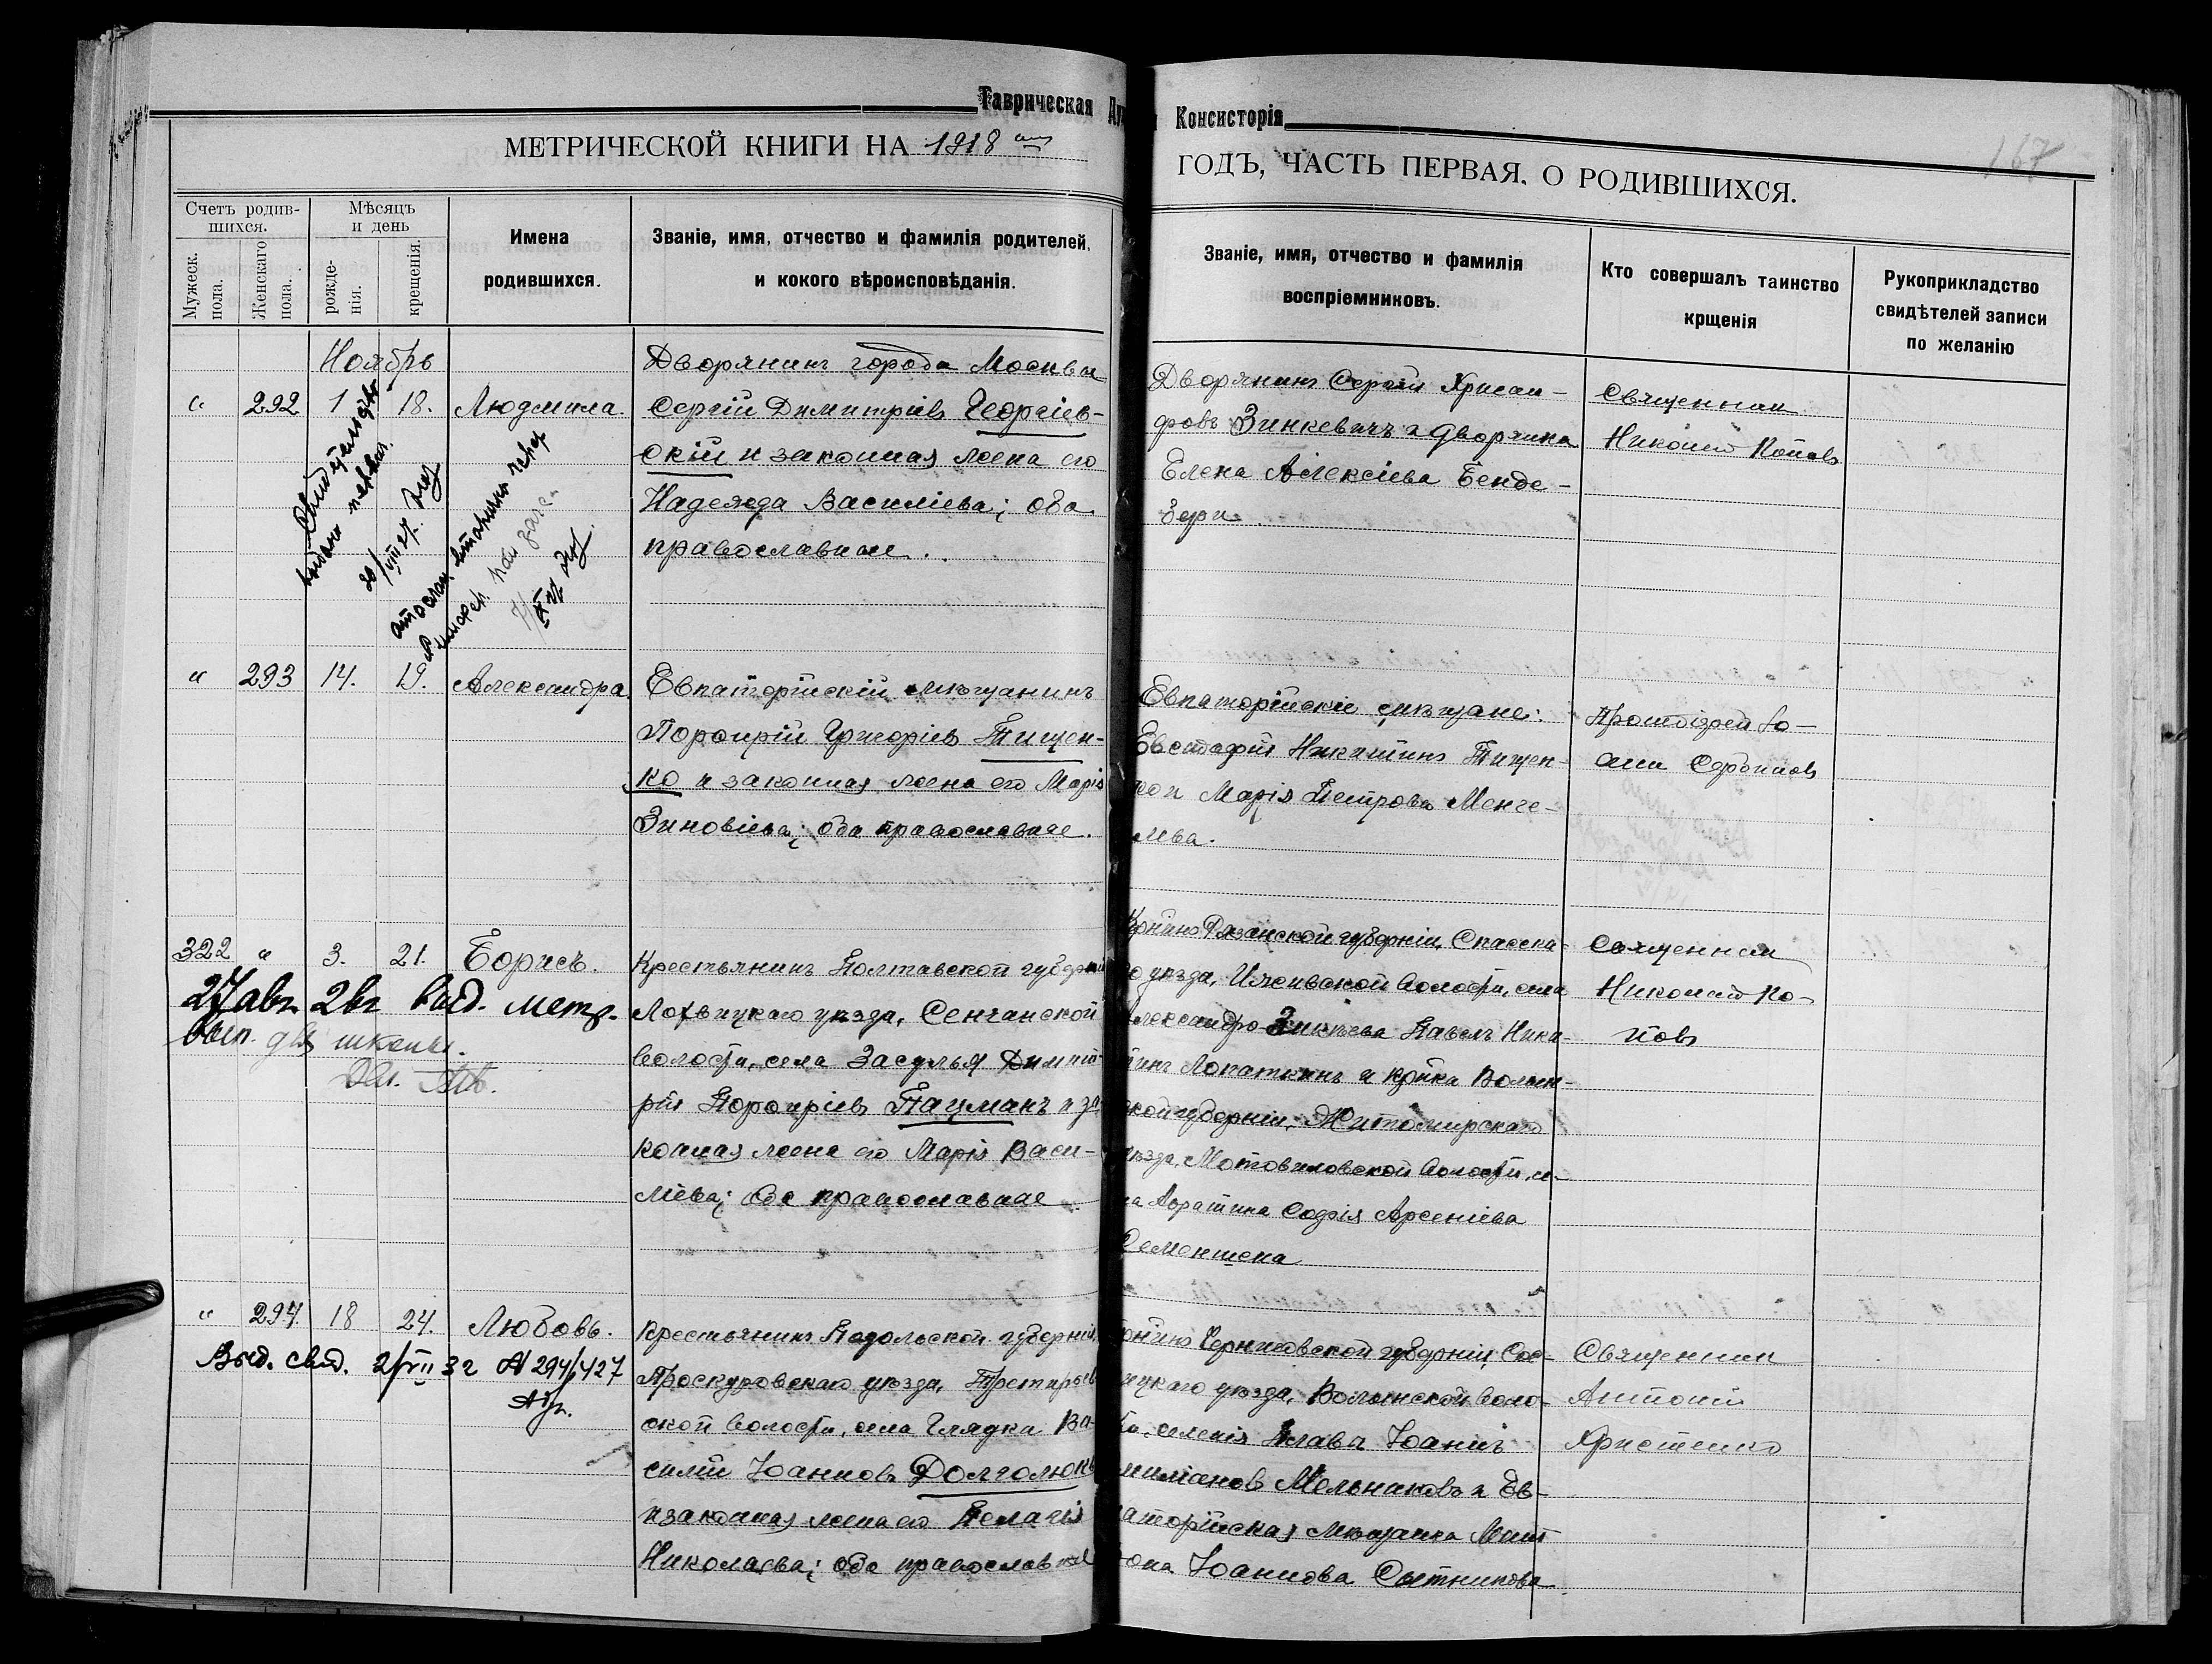 Таврическая Ду
Консисторія
167
МЕТРИЧЕСКОЙ КНИГИ НА 1918
ГОДЪ, ЧАСТЬ ПЕРВАЯ, О РОДИВШИХСЯ.
Счетъ родив-
шихся.
Мужеск.
пола.
Женскаго
пола.
Мѣсяцъ
и день
рожде-
нія.
крещенія.
Имена
родившихся.
Званіе, имя, отчество и фамилія родителей,
и кокого вѣроисповѣданія.
Званіе, имя, отчество и фамилія
воспріемниковъ.
Кто совершалъ таинство
крщенія
Рукоприкладство
свидѣтелей записи
по желанію
Ноябрь
" 292 1 18. Людмила.
Дворянинъ города Москвы
Сергій Димитріевъ Георгіев-
скій и законная жена его
Надежда Василіева; оба
православные.
Дворянинъ Сергій Хрисан-
фовъ Зинкевичъ и дворянка
Елена Алексіева Бенде-
бери
Священник
Николай Поповъ
20/VIII 27.
" 293 14. 19. Александра
Евпаторійскій мѣщанинъ
Порфирій Григоріевъ Тищен-
ко и законная жена его Марія
Зиновіева; оба православные.
Евпаторійскіе мѣщане:
Евстафій Никитинъ Тищен-
ко и Марія Петрова Менге-
лева.
Протоіерей Іо-
анн Сербиновъ
322 " 3. 21. Борисъ.
27 авг. 2 выд. метр.
вып. для школы.
Крестьянинъ Полтавской губерніи
Лохвицкаго уѣзда, Сенчанской
волости, села Засулья Димит-
рій Порфиріевъ Пацманъ и за-
конная жена его Марія Васи-
ліева; оба православные
Кр-нинъ Рязанской губерніи, Спасска-
го уѣзда, Ижевской волости, села
Александро- Павелъ Ники-
тинъ Лопаткинъ и кр-нка Волын-
ской губерніи, Житомирскаго
уѣзда, Мотовиловской волости, се-
ла Софія Арсеніева
Священник
Николай По-
повъ
" 294. 18 24. Любовь.
Выд. свид. 2/VII 32 № 294/427
Крестьянинъ Подольской губерніи,
Проскуровскаго уѣзда,
ской волости, села Глядки Ва-
силій Іоанновъ Долголюкъ
и законная жена его Пелагія
Николаева; оба православные
Черниговской губерніи, Сос-
ницкаго уѣзда, Волынской воло-
сти, селенія Іоаннъ
Мельниковъ и Ев-
паторійская мѣщанка
Іоаннова Сытникова.
Священник
Антоній
Христенко